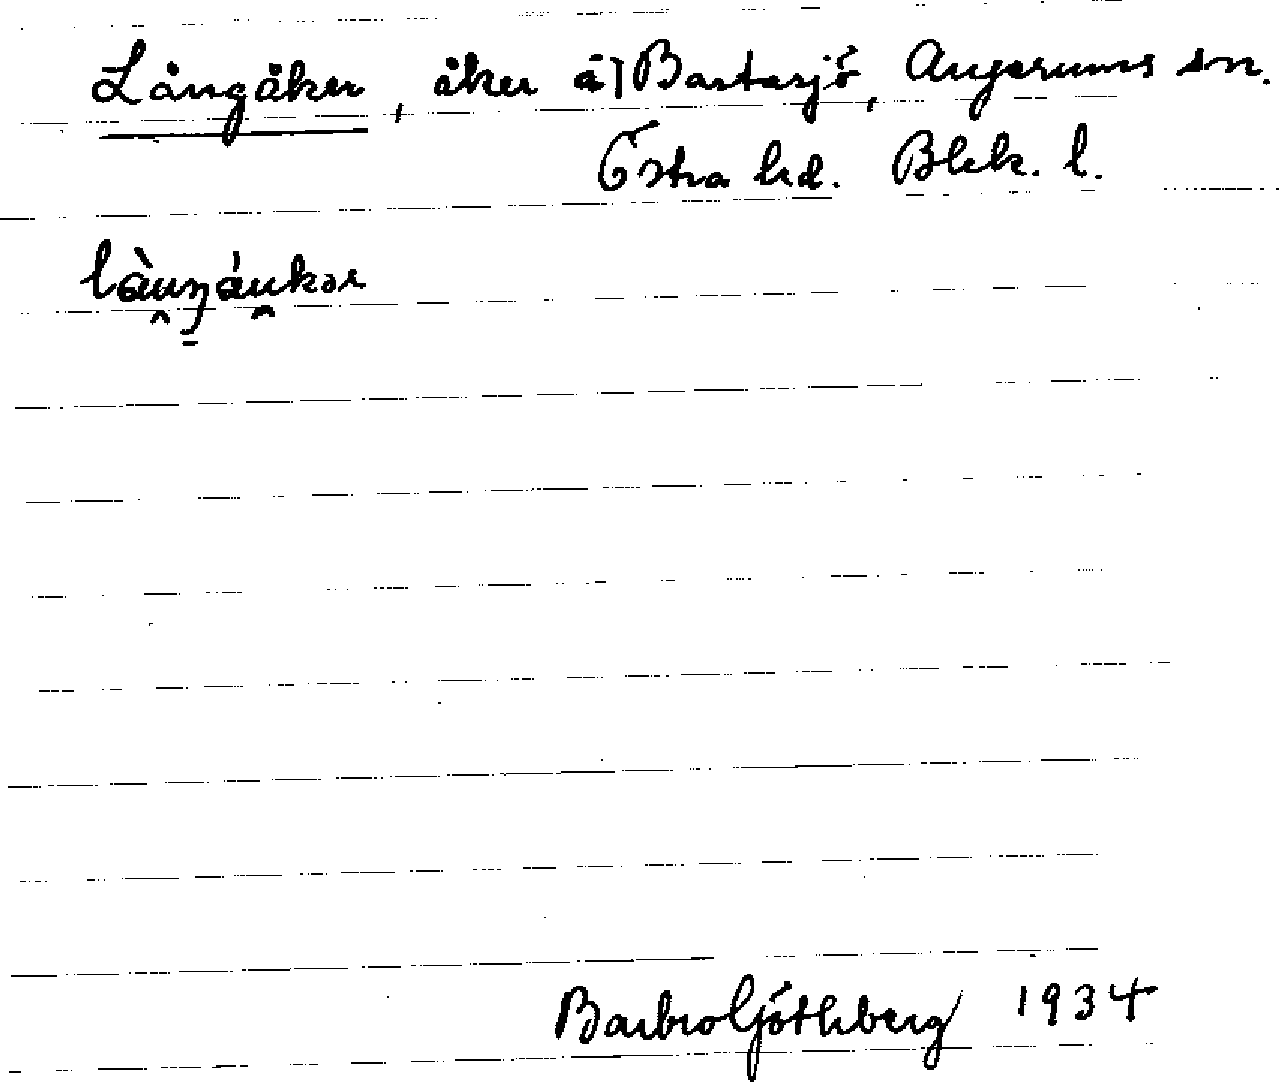 Långåker, åker å] Bartasjö, Augerums sn.
Östra hd. Blek. l.
làu̯ŋáu̯kər
Barbro Göthberg 1934